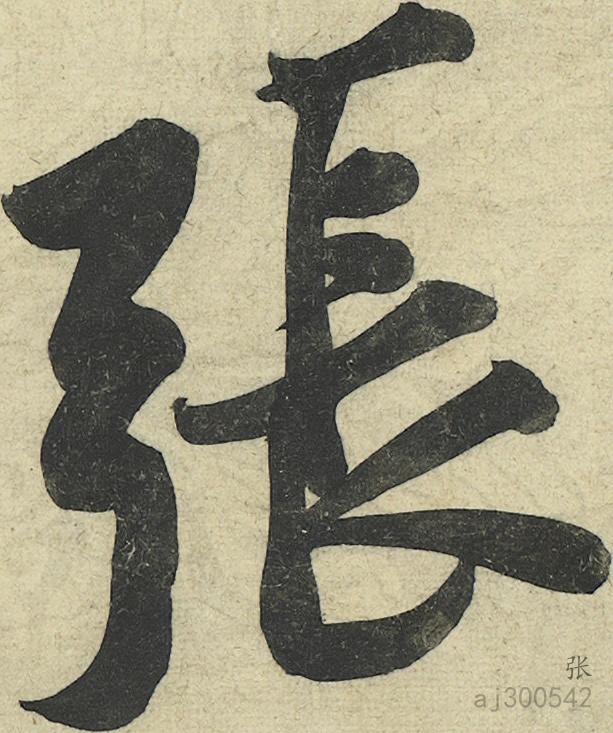 張
张
aj300542